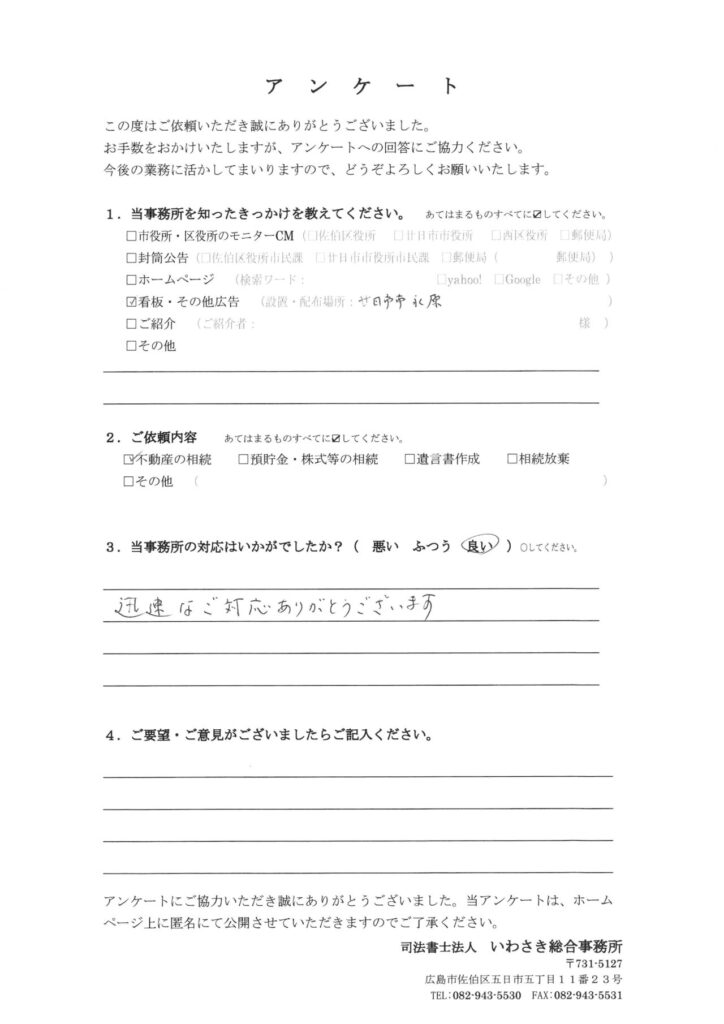 アンケート
この度はご依頼いただき誠にありがとうございました。
お手数をおかけいたしますが、アンケートへの回答にご協力ください。
今後の業務に活かしてまいりますので、どうぞよろしくお願いいたします。
1．当事務所を知ったきっかけを教えてください。 あてはまるものすべてに☑してください。
□市役所・区役所のモニターCM（□佐伯区役所 □廿日市市役所 □西区役所 □郵便局）
□封筒公告（□佐伯区市民課 □廿日市市役所市民課 □郵便局（ 郵便局））
□ホームページ （検索ワード： □yahoo! □Google □その他）
☑看板・その他広告（設置・配布場所：廿日市市 永原 ）
□ご紹介 （ご紹介者： 様 ）
□その他
2．ご依頼内容 あてはまるものすべてに☑してください。
☑不動産の相続 □預貯金・株式等の相続 □遺言書作成 □相続放棄
□その他 （ ）
3．当事務所の対応はいかがでしたか？（ 悪い ふつう 良い ）○してください。
迅速なご対応ありがとうございます
4．ご要望・ご意見がございましたらご記入ください。
アンケートにご協力いただき誠にありがとうございました。当アンケートは、ホーム
ページ上に匿名にて公開させていただきますのでご了承ください。
司法書士法人 いわさき総合事務所
〒731-5127
広島市佐伯区五日市五丁目１１番２３号
TEL:082-943-5530 FAX:082-943-5531